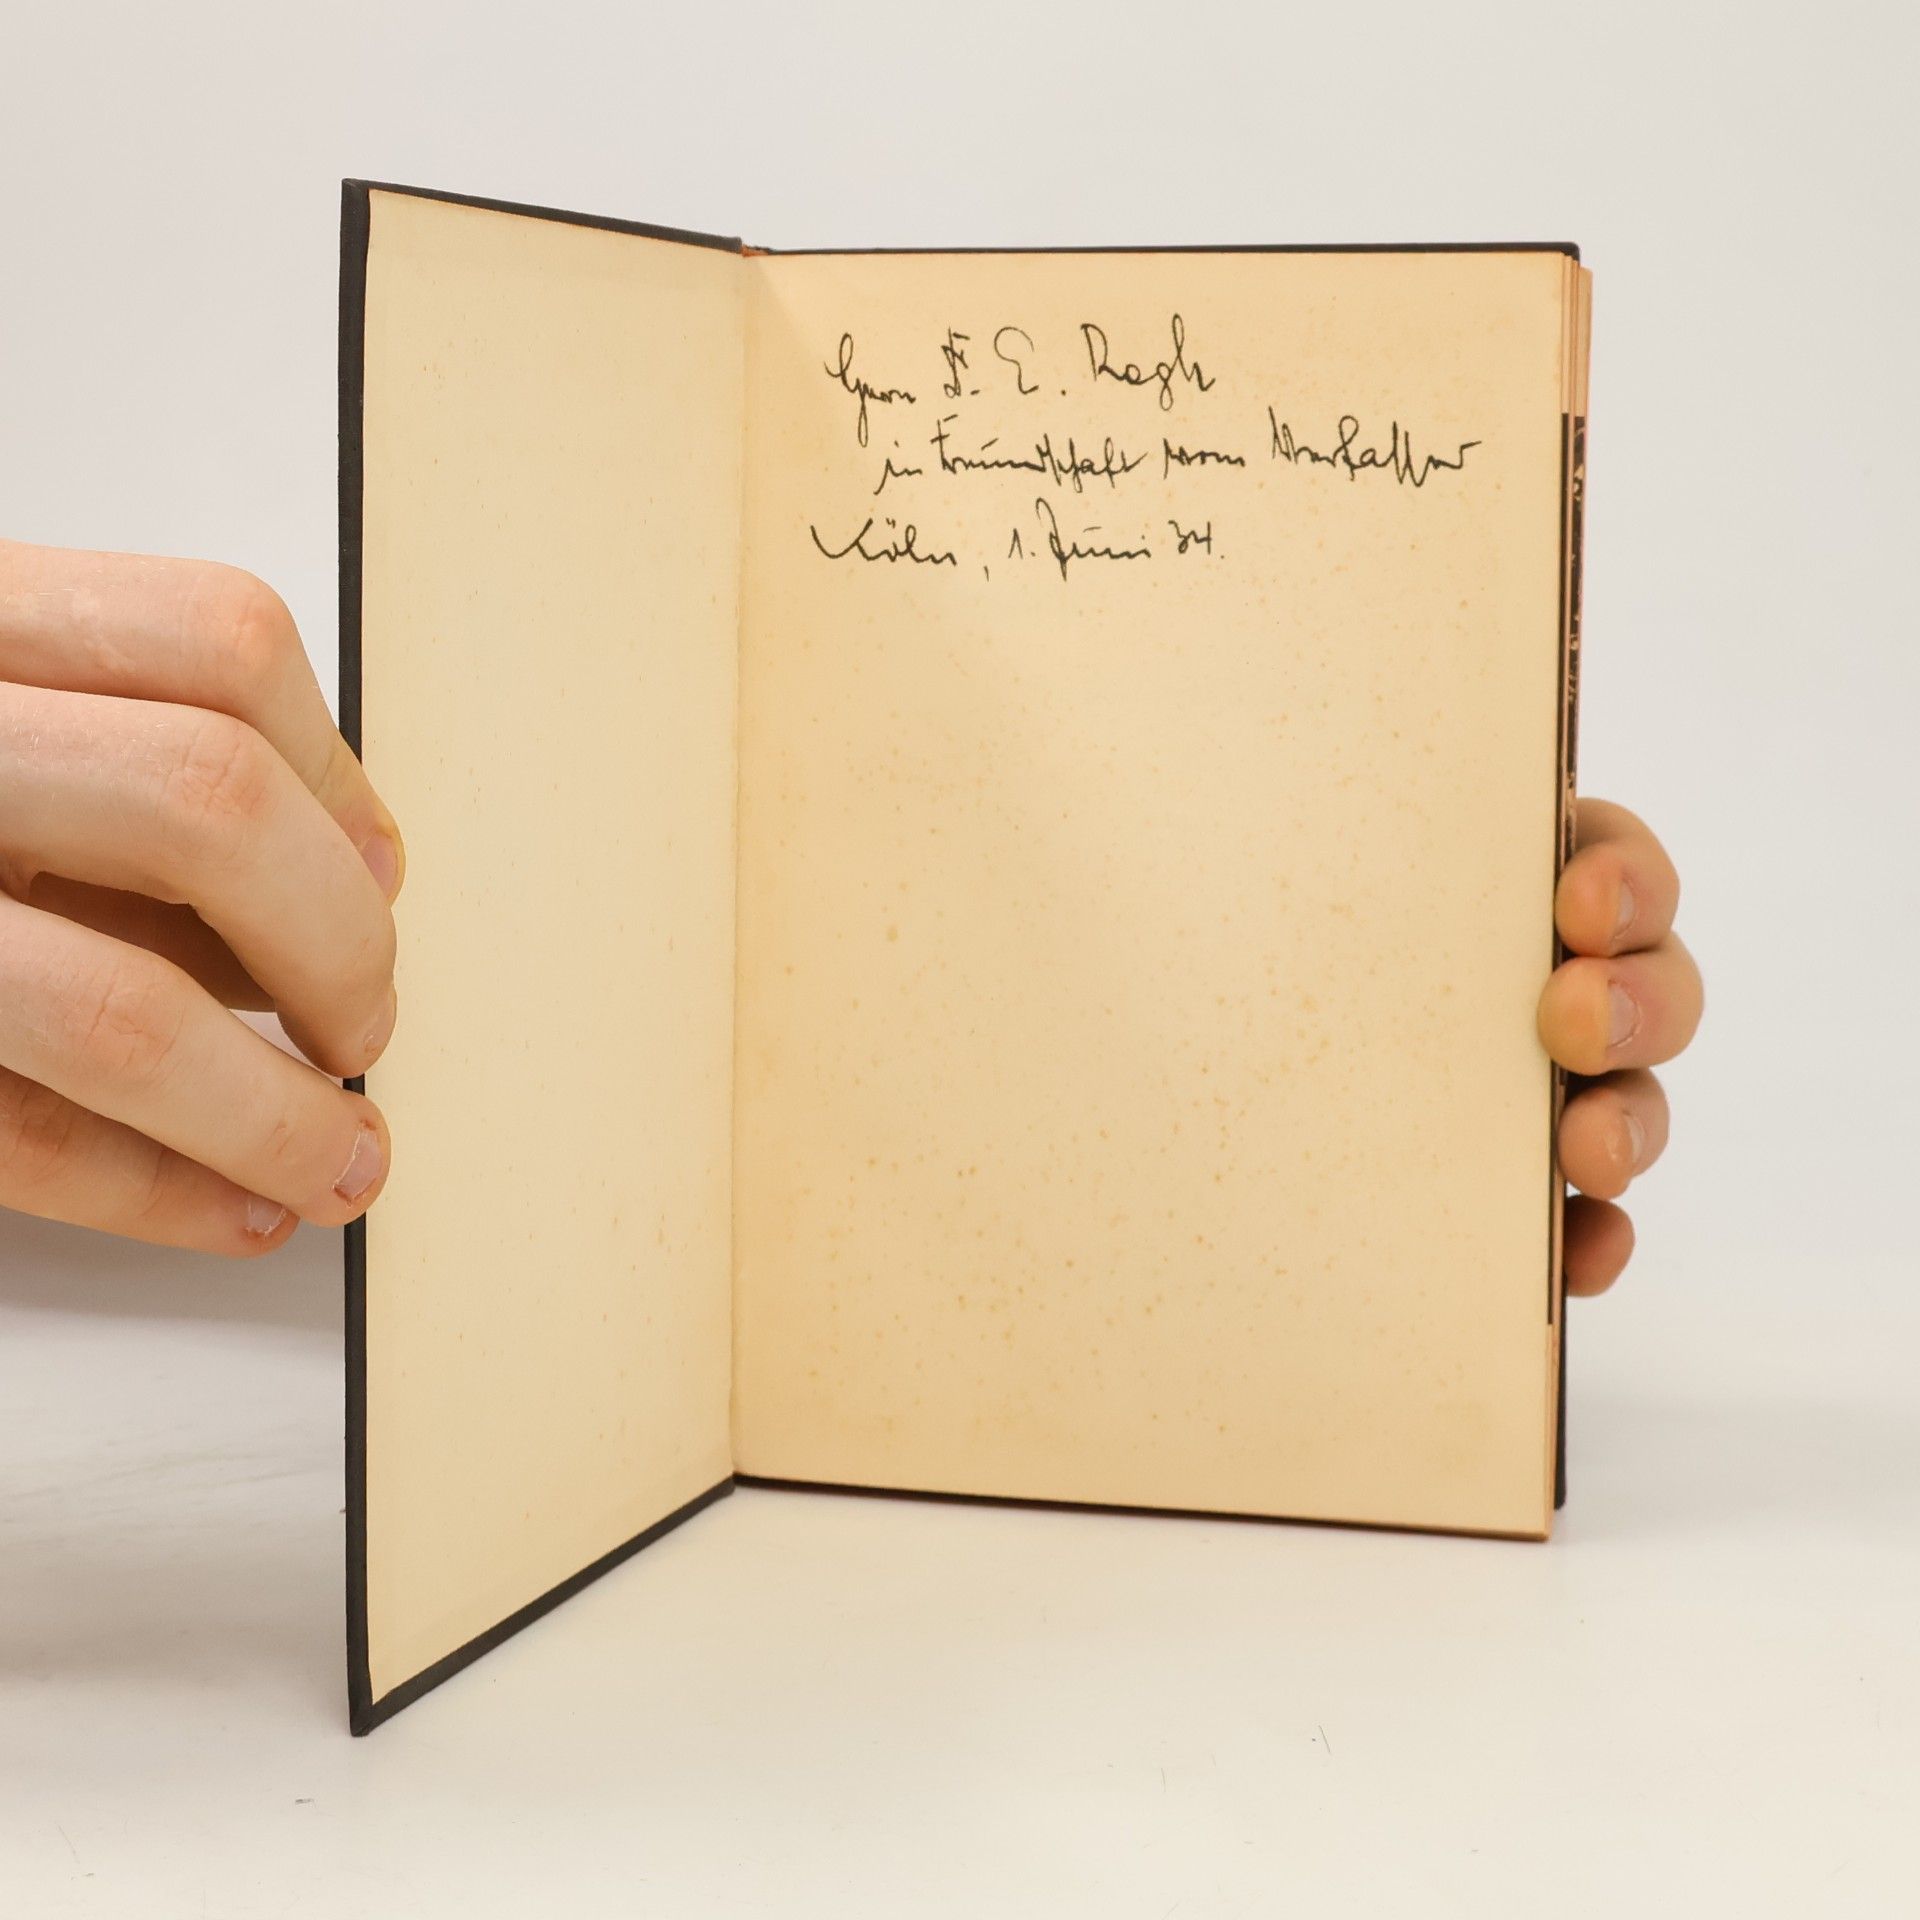 Herrn F. E. Rogh
in Freundschaft vom Verfasser
Köln, 1. Juni 34.